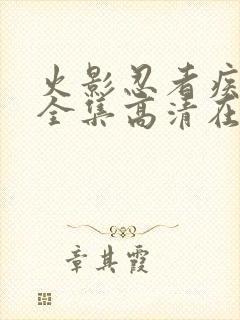 火影忍者疾
全集高清在
章其霞